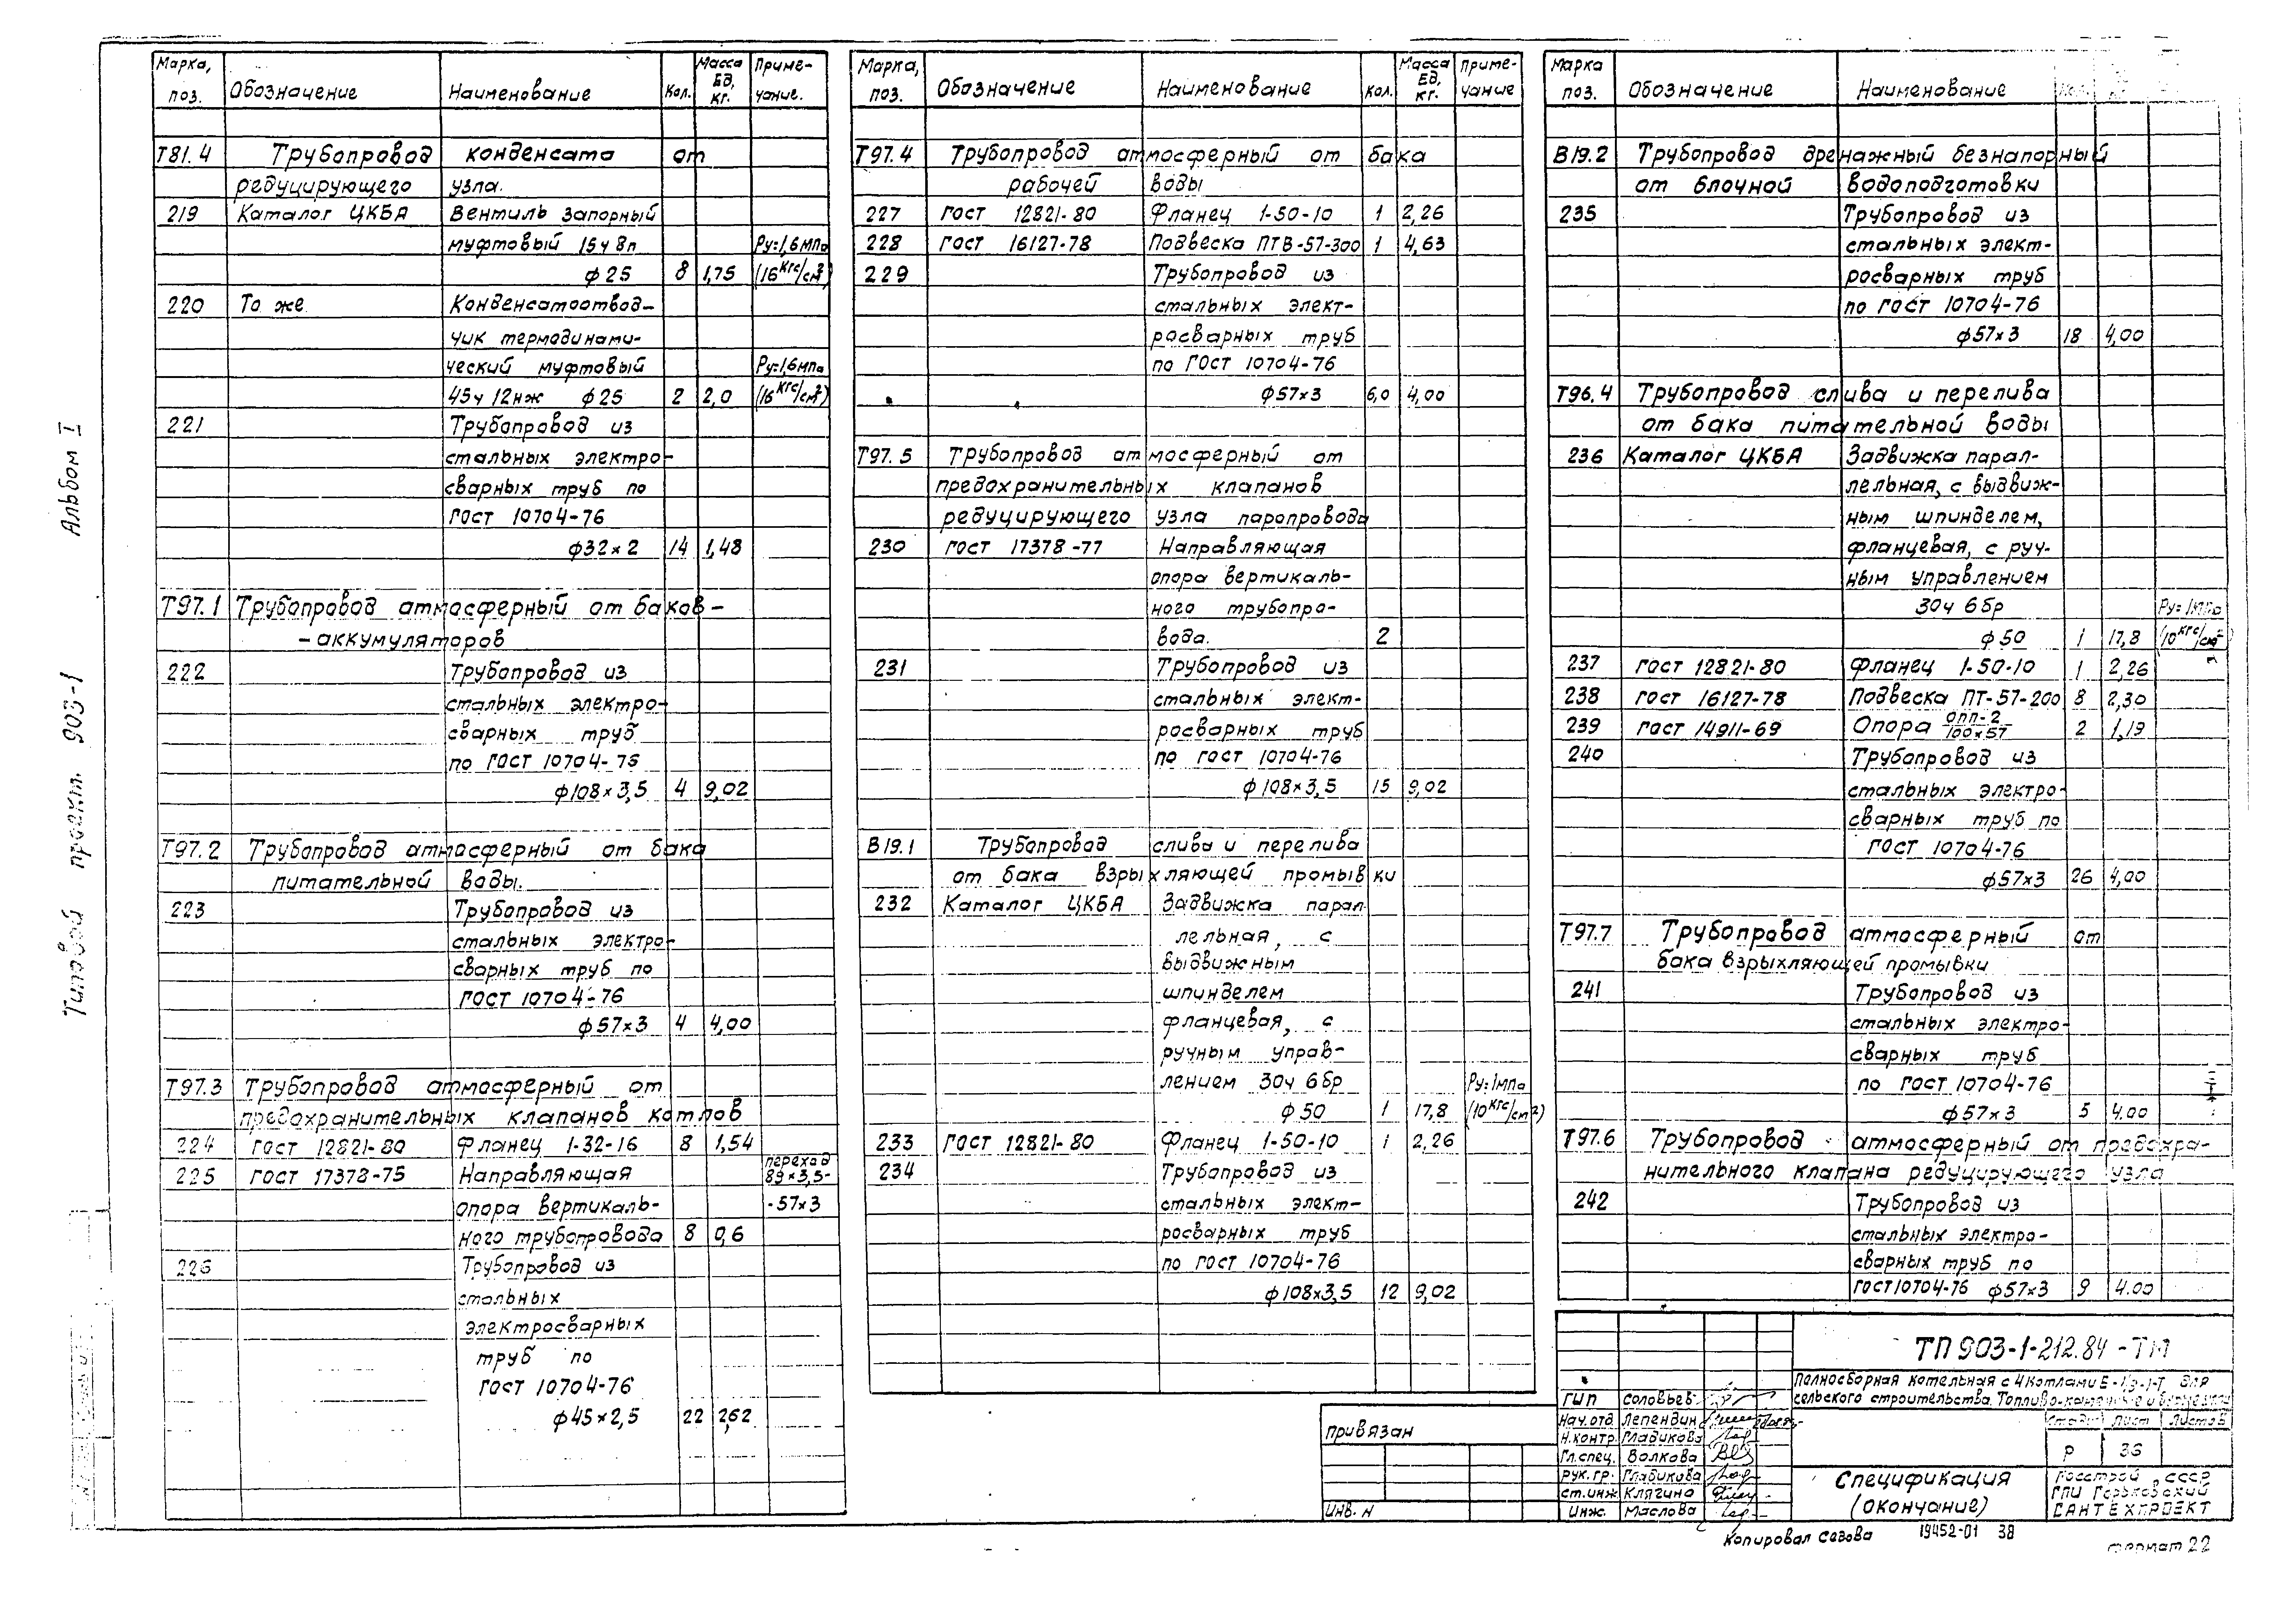 Альбом I
Типовой проект 903-1
Марка, поз. Обозначение Наименование Кол. Масса Ед, кг. Приме- чание.
Т81.4 Трубопровод конденсата от
редуцирующего узла.
219 Каталог ЦКБА Вентиль запорный
муфтовый 15ч 8п Ру=1,6мпа
ф25 8 1,75 (16 кгс/см²)
220 То же Конденсатоотвод-
чик термодинами-
ческий муфтовый Ру=1,6мпа
45ч 12нж ф25 2 2,0 (16 кгс/см²)
221 Трубопровод из
стальных электро-
сварных труб по
ГОСТ 10704-76
ф32×2 14 1,48
Т97.1 Трубопровод атмосферный от баков-
-аккумуляторов
222 Трубопровод из
стальных электро-
сварных труб
по ГОСТ 10704-76
ф108×3,5 4 9,02
Т97.2 Трубопровод атмосферный от бака
питательной воды.
223 Трубопровод из
стальных электро-
сварных труб по
ГОСТ 10704-76
ф57×3 4 4,00
Т97.3 Трубопровод атмосферный от
предохранительных клапанов котлов
224 ГОСТ 12821-80 Фланец 1-32-16 8 1,54
225 ГОСТ 17378-75 Направляющая переход 89×3,5-
опора вертикаль- -57×3
ного трубопровода 8 0,6
226 Трубопровод из
стальных
электросварных
труб по
ГОСТ 10704-76
ф45×2,5 22 2,62
Марка, поз. Обозначение Наименование кол. Масса Ед, кг. Приме- чание
Т97.4 Трубопровод атмосферный от бака
рабочей воды
227 ГОСТ 12821-80 Фланец 1-50-10 1 2,26
228 ГОСТ 16127-78 Подвеска ПТВ-57-300 1 4,63
229 Трубопровод из
стальных элект-
росварных труб
по ГОСТ 10704-76
ф57×3 6,0 4,00
Т97.5 Трубопровод атмосферный от
предохранительных клапанов
редуцирующего узла паропровода
230 ГОСТ 17378-77 Направляющая
опора вертикаль-
ного трубопро-
вода. 2
231 Трубопровод из
стальных элект-
росварных труб
по ГОСТ 10704-76
ф108×3,5 15 9,02
В19.1 Трубопровод слива и перелива
от бака взрыхляющей промывки
232 Каталог ЦКБА Задвижка парал
лельная, с
выдвижным
шпинделем
фланцевая, с
ручным управ-
лением 30ч 6бр Ру=1мпа
ф50 1 17,8 (10 кгс/см²)
233 ГОСТ 12821-80 Фланец 1-50-10 1 2,26
234 Трубопровод из
стальных элект-
росварных труб
по ГОСТ 10704-76
ф108×3,5 12 9,02
Марка поз. Обозначение Наименование
В19.2 Трубопровод дренажный безнапорный
от блочной водоподготовки
235 Трубопровод из
стальных элект-
росварных труб
по ГОСТ 10704-76
ф57×3 18 4,00
Т96.4 Трубопровод слива и перелива
от бака питательной воды
236 Каталог ЦКБА Задвижка парал-
лельная, с выдвиж-
ным шпинделем,
фланцевая, с руч-
ным управлением
30ч 6бр Ру=1мпа
ф50 1 17,8 (10 кгс/см²)
237 ГОСТ 12821-80 Фланец 1-50-10 1 2,26
238 ГОСТ 16127-78 Подвеска ПТ-57-200 8 2,30
239 ГОСТ 14911-69 Опора ОПП-2/100×57 2 1,19
240 Трубопровод из
стальных электро-
сварных труб по
ГОСТ 10704-76
ф57×3 26 4,00
Т97.7 Трубопровод атмосферный от
бака взрыхляющей промывки
241 Трубопровод из
стальных электро-
сварных труб
по ГОСТ 10704-76
ф57×3 5 4.00
Т97.6 Трубопровод атмосферный от предохра-
нительного клапана редуцирующего узла
242 Трубопровод из
стальных электро-
сварных труб по
ГОСТ 10704-76 ф57×3 9 4.00
ТП 903-1-212.84-ТМ
Полносборная котельная с 4 котлами Е-1/9-1-Т для
сельского строительства.
ГИП Соловьев
Нач.отд. Лепендин
Н.контр. Гладикова
Гл.спец. Волкова
Рук.гр. Гладикова
Ст.инж. Клягина
Инж. Маслова
Стадия Лист Листов
Р 36
Спецификация
(окончание)
Госстрой СССР
ГПИ Горьковский
САНТЕХПРОЕКТ
привязан
инв. N
Копировал Сезова 19452-01 38
формат 22